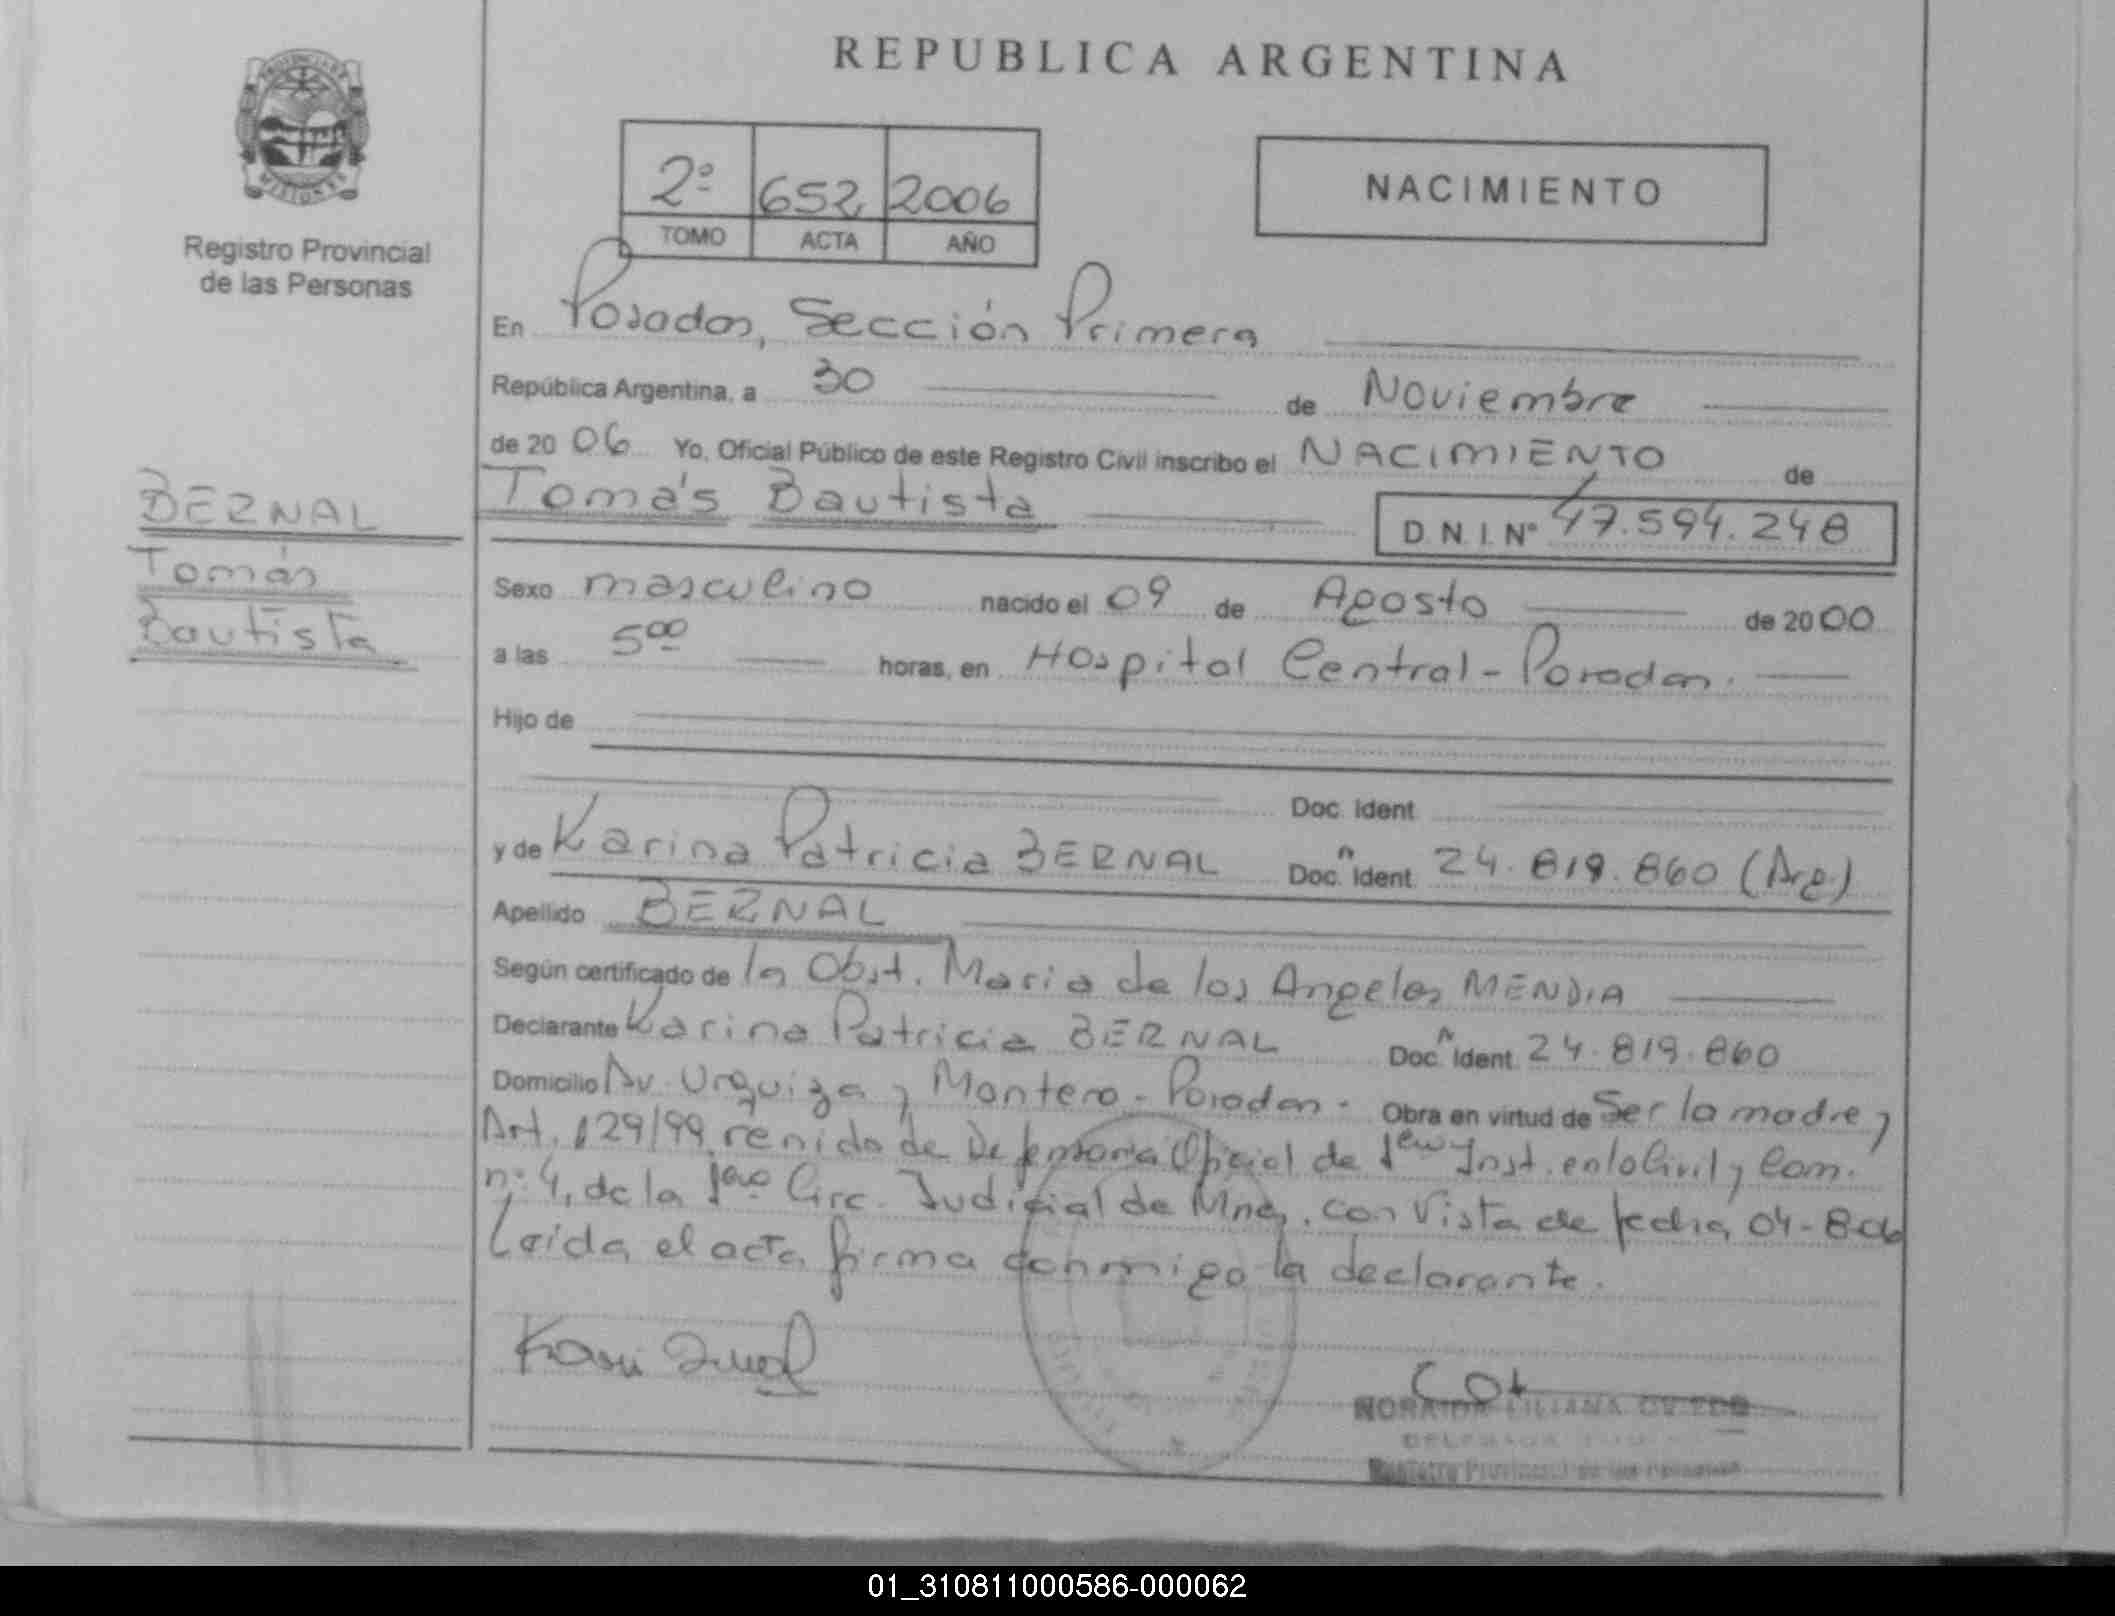 REPUBLICA ARGENTINA
PROVINCIA DE
MISIONES
Registro Provincial
de las Personas
2º 652 2006
TOMO ACTA AÑO
NACIMIENTO
En Posadas, Sección Primera
República Argentina, a 30 de Noviembre
de 20 06 Yo, Oficial Público de este Registro Civil inscribo el NACIMIENTO de
Tomás Bautista D.N.I. Nº 47.594.248
BERNAL
Tomás
Bautista
Sexo masculino nacido el 09 de Agosto de 20 00
a las 5 00 horas, en Hospital Central - Posadas.
Hijo de
Doc. Ident.
y de Karina Patricia BERNAL Doc. Ident. 24.819.860 (Arg.)
Apellido BERNAL
Según certificado de la Obst. Maria de los Angeles MENDIA
Declarante Karina Patricia BERNAL Doc. Ident. 24.819.860
Domicilio Av. Urquiza y Montero - Posadas. Obra en virtud de Ser la madre y
Art. 129/99, venido de Defensoria Oficial de 1era Inst. en lo Civil y Com.
nº 4, de la 1era Circ. Judicial de Mnes, con Vista de fecha 04-8-06
Leída el acta firma conmigo la declarante.
LILIANA
Registro Provincial de las Personas
01_310811000586-000062